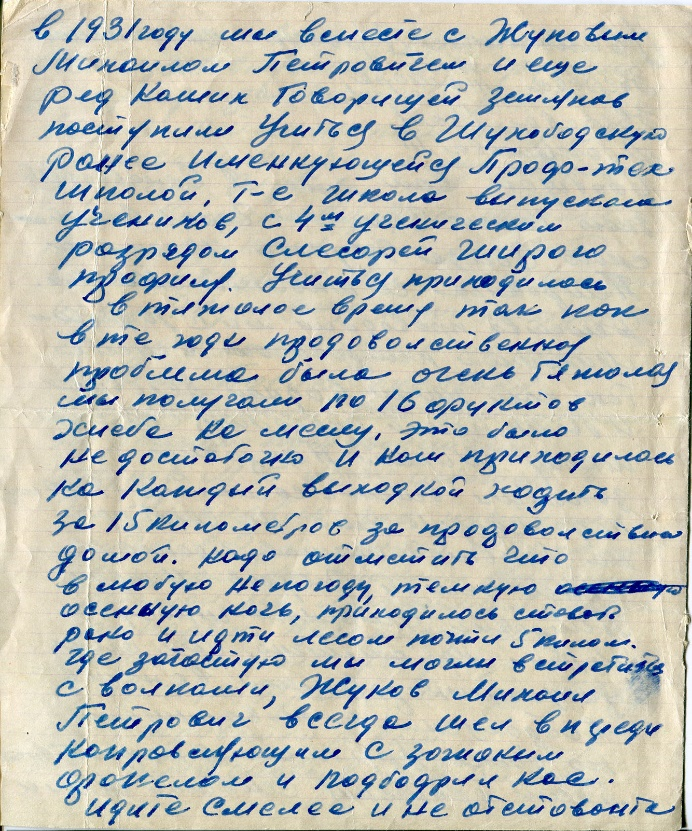 в 1931 году мы вместе с Жуковым
Михаилом Петровичем и еще
ряд наших товарищей земляков
поступили учиться в Шухободскую
ранее именующейся Профо-тех
школой, т-е школа выпускала
учеников, с 4м ученическим
разрядом слесарей широго
профиля. Учиться приходилось
в тяжолое время так как
в те годы продовольственная
проблема была очень тяжолая
мы получали по 16 фунтов
хлеба на месяц. это было
не достаточно и нам приходилось
на каждый выходной ходить
за 15 километров за продовольствием
домой. надо отметить что
в любую непогоду, темную
осенную ночь, приходилось ставать
рано и идти лесом почти 5 килом.
где зачастую мы могли встретиться
с волками, Жуков Михаил
Петрович всегда шел впереди
направляющим с зажоным
факелом и подбодрял нас.
идите смелее и не отставайте